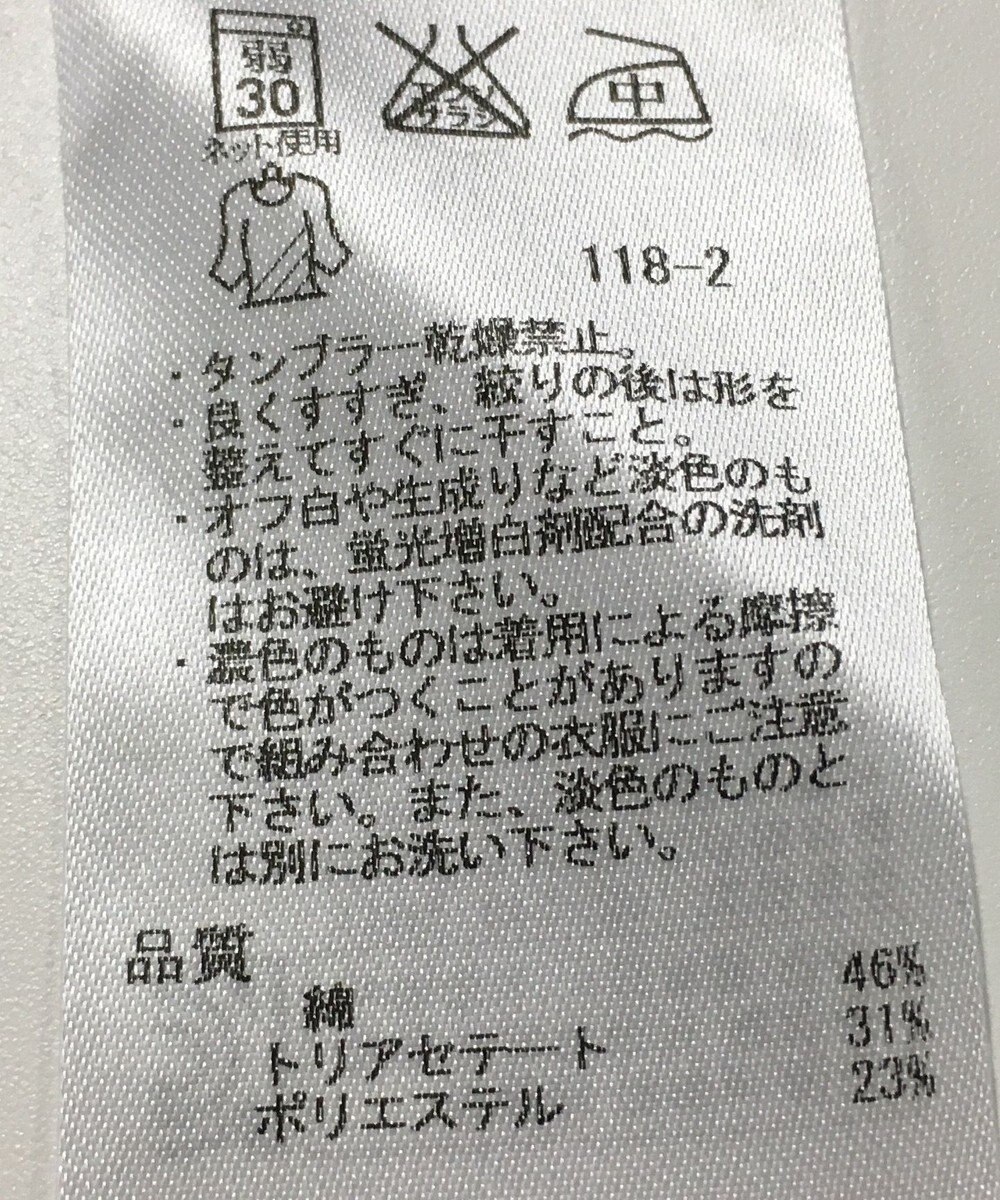 弱
30
ネット使用
エンソ
サラシ
中
118-2
・タンブラー乾燥禁止。
・良くすすぎ、絞りの後は形を
整えてすぐに干すこと。
・オフ白や生成りなど淡色のも
のは、蛍光増白剤配合の洗剤
はお避け下さい。
・濃色のものは着用による摩擦
で色がつくことがありますの
で組み合わせの衣服にご注意
下さい。また、淡色のものと
は別にお洗い下さい。
品質
綿 46%
トリアセテート 31%
ポリエステル 23%